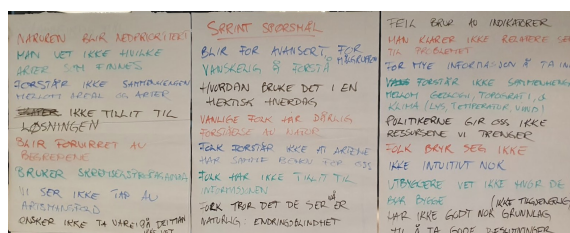 NATUREN BLIR NEDPRIORITERT
MAN VET IKKE HVILKE
ARTER SOM FINNES
FORSTÅR IKKE SAMMENHENGEN
MELLOM AREAL OG ARTER
IKKE TILLIT TIL
LØSNINGEN
BLIR FORVIRRET AV
BEGREPENE
BRUKER SKREMSELSPROPAGANDA
VI SER IKKE TAP AV
ARTSMANGFOLD
ØNSKER IKKE TA VARE PÅ
SPRINT SPØRSMÅL
BLIR FOR AVANSERT FOR
MÅLGRUPPEN
VANSKELIG Å FORSTÅ
HVORDAN BRUKE DET I EN
HEKTISK HVERDAG
VANLIGE FOLK HAR DÅRLIG
FORSTÅELSE AV NATUR
FOLK FORSTÅR IKKE AT ARTENE
HAR SAMME BEHOV FOR OSS
FOLK HAR IKKE TILLIT TIL
INFORMASJONEN
FOLK TROR DET DE SER ER
NATURLIG. ENDRINGSBLINDHET
FEIL BRUK AV INDIKATORER
MAN KLARER IKKE RELATERE SEG
TIL PROBLEMET
FOR MYE INFORMASJON Å TA INN
FORSTÅR IKKE SAMMENHENG
MELLOM GEOLOGI, TOPOGRAFI, &
KLIMA (LYS, TEMPERATUR, VIND)
POLITIKERNE GIR OSS IKKE
RESSURSENE VI TRENGER
FOLK BRYR SEG IKKE
IKKE INTUITIVT NOK
UTBYGGERE VET IKKE HVOR DE
BØR BYGGE
HAR IKKE GODT NOK GRUNNLAG
TIL Å TA GODE BESLUTNINGER